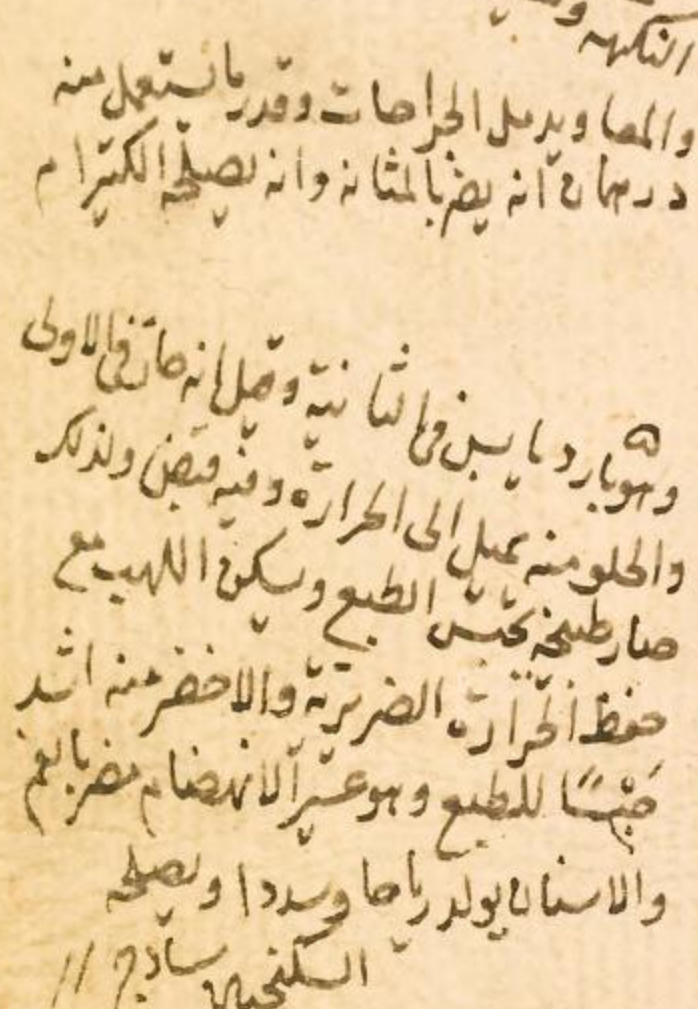 النكهة
والمعا ويدمل الجراحات وقدر ما يستعمل منه
درهمان انه يضر بالمثانة وانه يصلحه الكثيرا م
وهو بارد يابس في الثانية وقيل انه حار في الاولى
والحلو منه يميل الى الحرارة وفيه قبض ولذلك
صار طبيخه يحبس الطبع ويسكن اللهيب مع
حفظ الحرارة الغريزية والاخضر منه اشد
حبسًا للطبع وهو عسر الانهضام مضر بالفم
والاسنان يولد رياحا وسددا ويصلحه
السكنجبين ساذج //